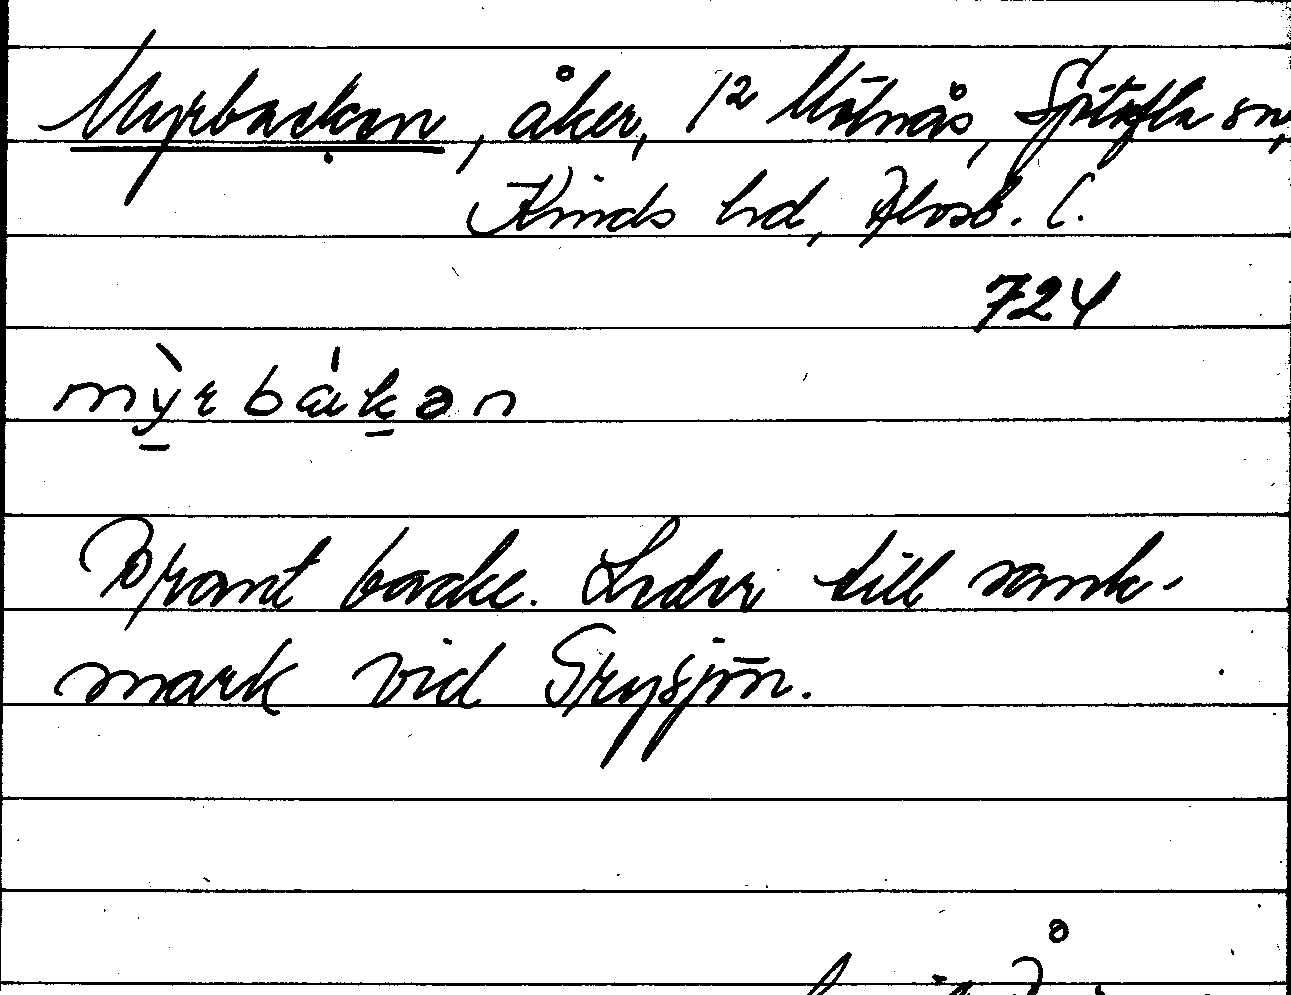 Myrbackan, åker, 1² Mölnås, Sjötofta sn,
Kinds hd, Älvsb. l.
724
mỳrbák̠ən
Brant backe. Lider till sank-
mark vid Grysjön.